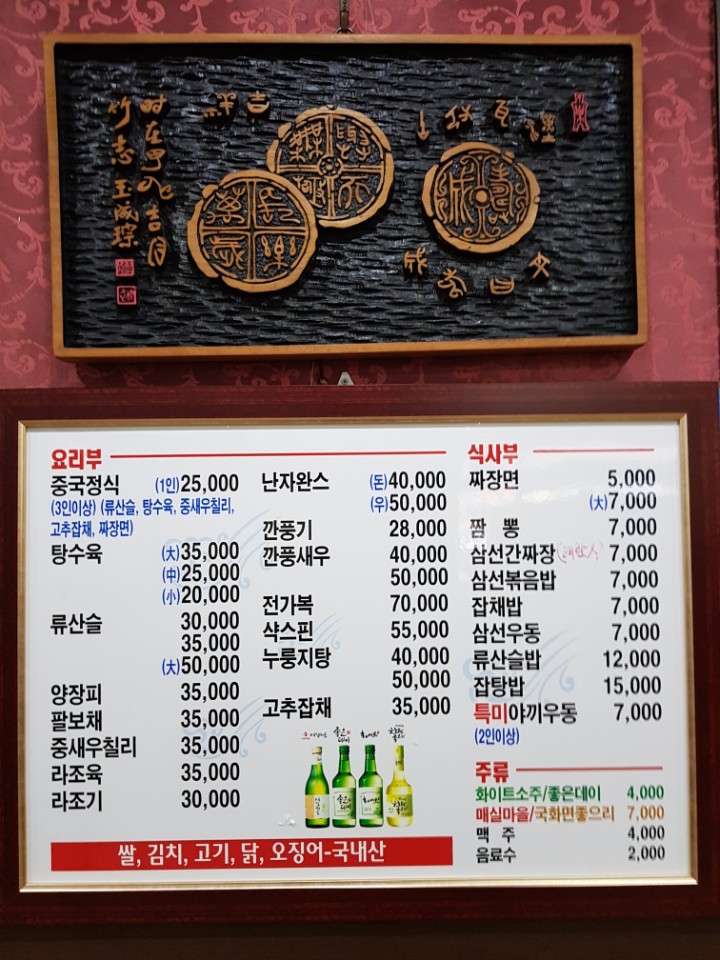 時在甲申吉月
竹志 王成琮
吉祥
요리부
중국정식 (1인)25,000
(3인이상) (류산슬, 탕수육, 중새우칠리,
고추잡채, 짜장면)
탕수육 (大)35,000
(中)25,000
(小)20,000
류산슬 30,000
35,000
(大)50,000
양장피 35,000
팔보채 35,000
중새우칠리 35,000
라조육 35,000
라조기 30,000
난자완스 (돈)40,000
(우)50,000
깐풍기 28,000
깐풍새우 40,000
50,000
전가복 70,000
샥스핀 55,000
누룽지탕 40,000
50,000
고추잡채 35,000
식사부
짜장면 5,000
(大)7,000
짬 뽕 7,000
삼선간짜장 7,000
삼선볶음밥 7,000
잡채밥 7,000
삼선우동 7,000
류산슬밥 12,000
잡탕밥 15,000
특미야끼우동 7,000
(2인이상)
주류
화이트소주/좋은데이 4,000
매실마을/국화면좋으리 7,000
맥 주 4,000
음료수 2,000
쌀, 김치, 고기, 닭, 오징어-국내산